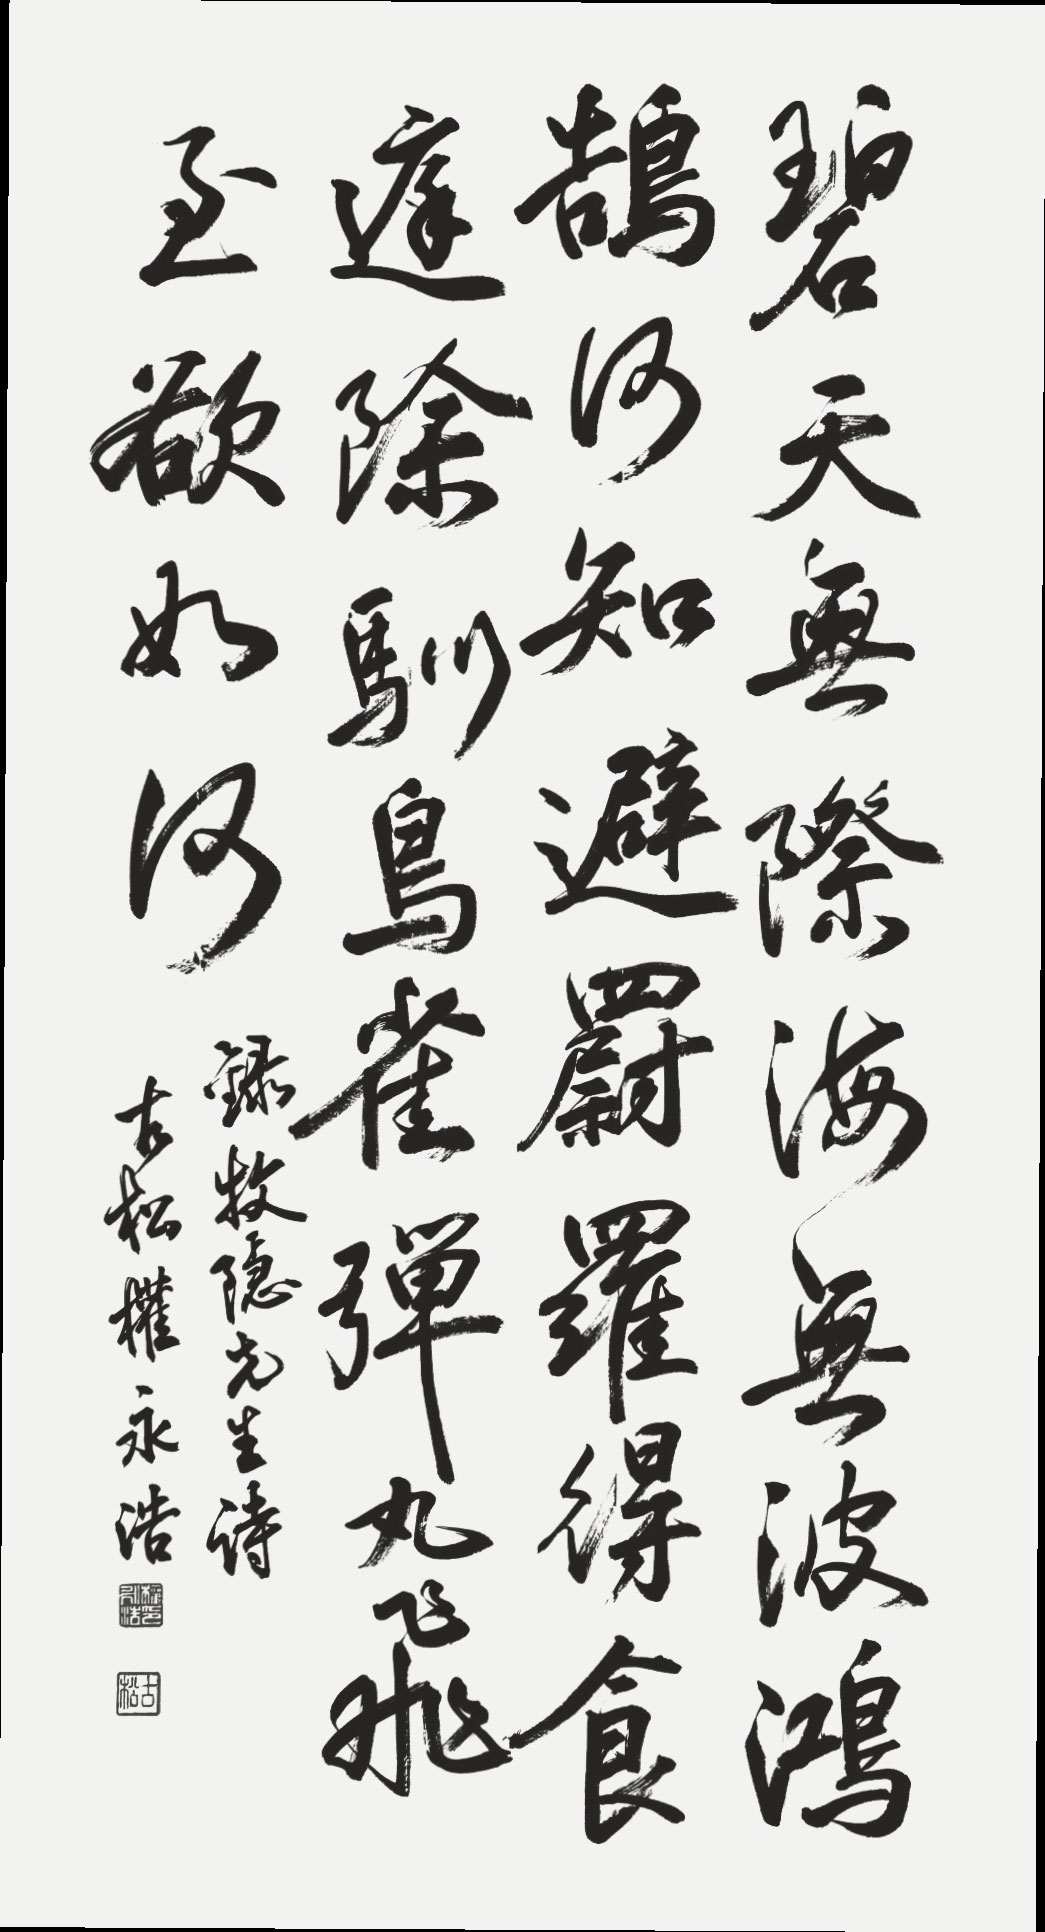 碧天無際海無波鴻
鵠何知避罻羅得食
庭除馴鳥雀彈丸飛
至欲如何
錄牧隱先生詩
古松權永浩
古松